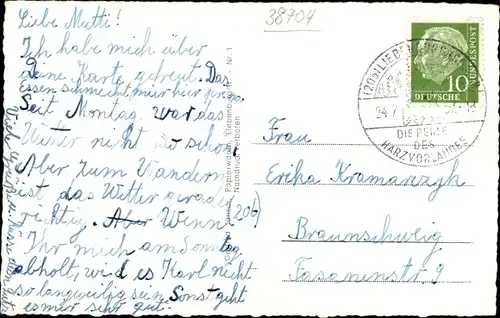 38704
Liebe Mutti!
Ich habe mich über
deine Karte gefreut. Das
Essen schmeckt mir hier prima.
Seit Montag war das
Wetter nicht so schön.
Aber zum Wandern
ist das Wetter gerade
richtig. Aber Wenn
Ihr mich am Sonntag
abholt, wird es Karl nicht
so langweilig sein. Sonst geht
es mir sehr gut.
Viele Grüße
Papierwaren, Liebenburg Nr. 1
Nachdruck verboten
(20b) LIEBENBURG
24.7.
DIE PERLE
DES
HARZVORLANDES
10
DEUTSCHE
BUNDESPOST
Frau
Erika Kramarczyk
20b) Braunschweig
Fasanenstr. 9